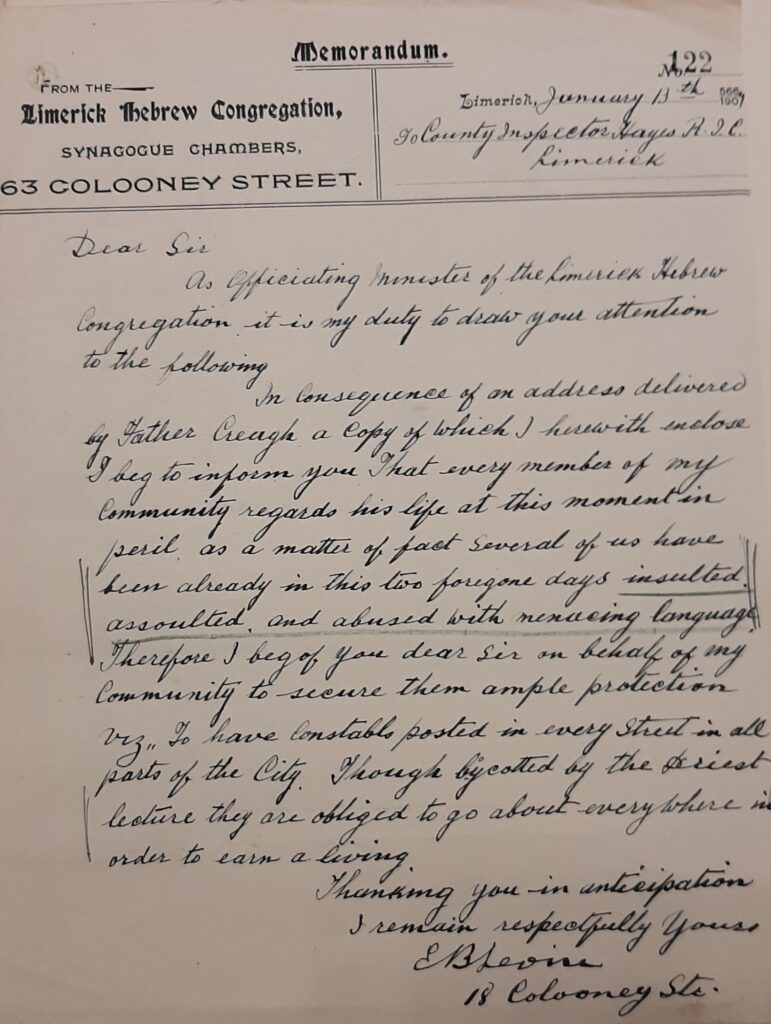 Memorandum.
No. 122
FROM THE
Limerick Hebrew Congregation,
SYNAGOGUE CHAMBERS,
63 COLOONEY STREET.
Limerick, January 13th 190
To County Inspector Hayes R.I.C.
Limerick
Dear Sir
As Officiating Minister of the Limerick Hebrew
Congregation it is my duty to draw your attention
to the following
In Consequence of an address delivered
by Father Creagh a Copy of which I herewith enclose
I beg to inform you That every member of my
Community regards his life at this moment in
peril, as a matter of fact several of us have
been already in this two foregone days insulted,
assoulted, and abused with menacing language
Therefore I beg of you dear Sir on behalf of my
Community to secure them ample protection
viz,, To have Constabls posted in every Street in all
parts of the City. Though bycotted by the Priest
lecture they are obliged to go about everywhere in
order to earn a living
Thanking you in anticipation
I remain respectfully Yours
E B Levin
18 Colooney Str.